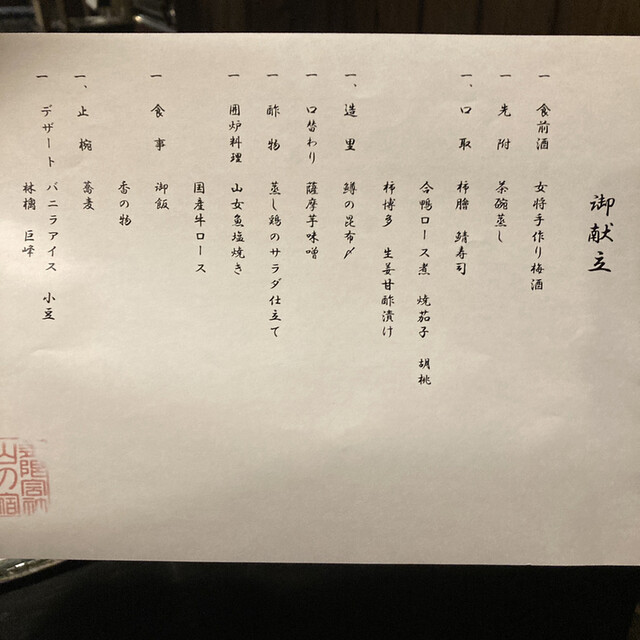 御献立
一 食前酒 女将手作り梅酒
一 先附 茶碗蒸し
一、口取 柿膾 鯖寿司
合鴨ロース煮 焼茄子 胡桃
柿博多 生姜甘酢漬け
一、造里 鱒の昆布〆
一 口替わり 薩摩芋味噌
一 酢物 蒸し鶏のサラダ仕立て
一 囲炉料理 山女魚塩焼き
国産牛ロース
一 食事 御飯
香の物
一、止椀 蕎麦
一 デザート バニラアイス 小豆
林檎 巨峰
山の宿